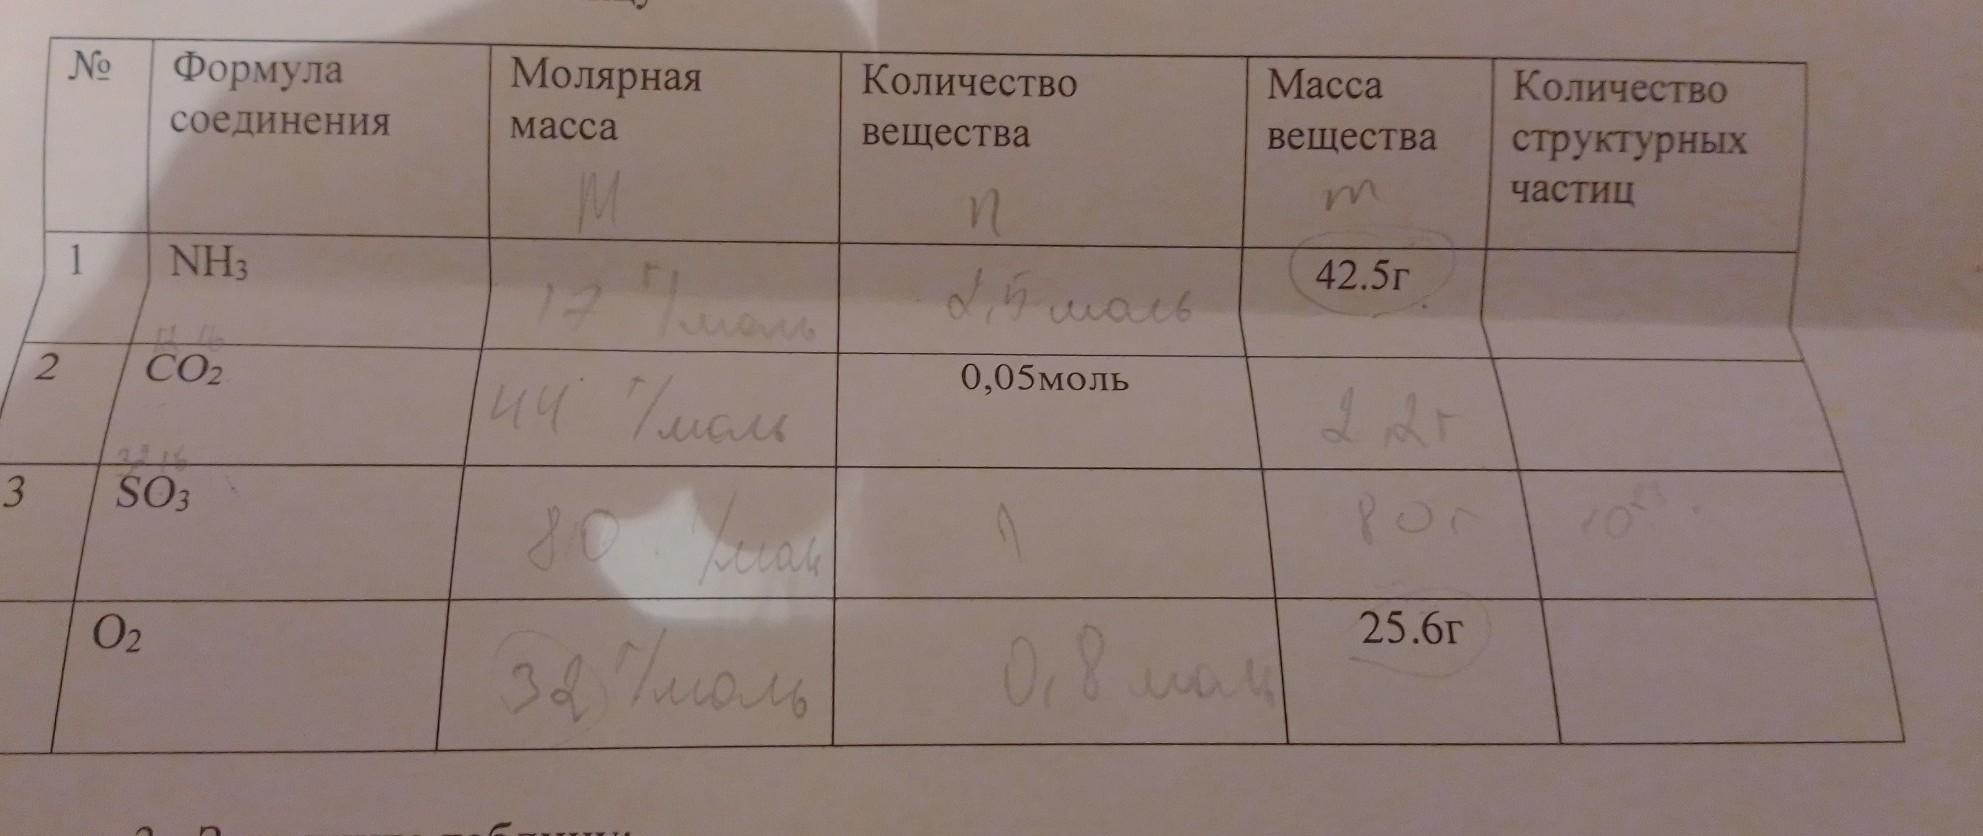 №
Формула
соединения
Молярная
масса
M
Количество
вещества
n
Масса
вещества
m
Количество
структурных
частиц
1
NH3
17 г/моль
2,5 моль
42.5г
12 16
2
CO2
44 г/моль
0,05моль
2,2г
32 16
3
SO3
80 г/мол
1
80г
10²³
O2
32 г/моль
0,8 мол
25.6г